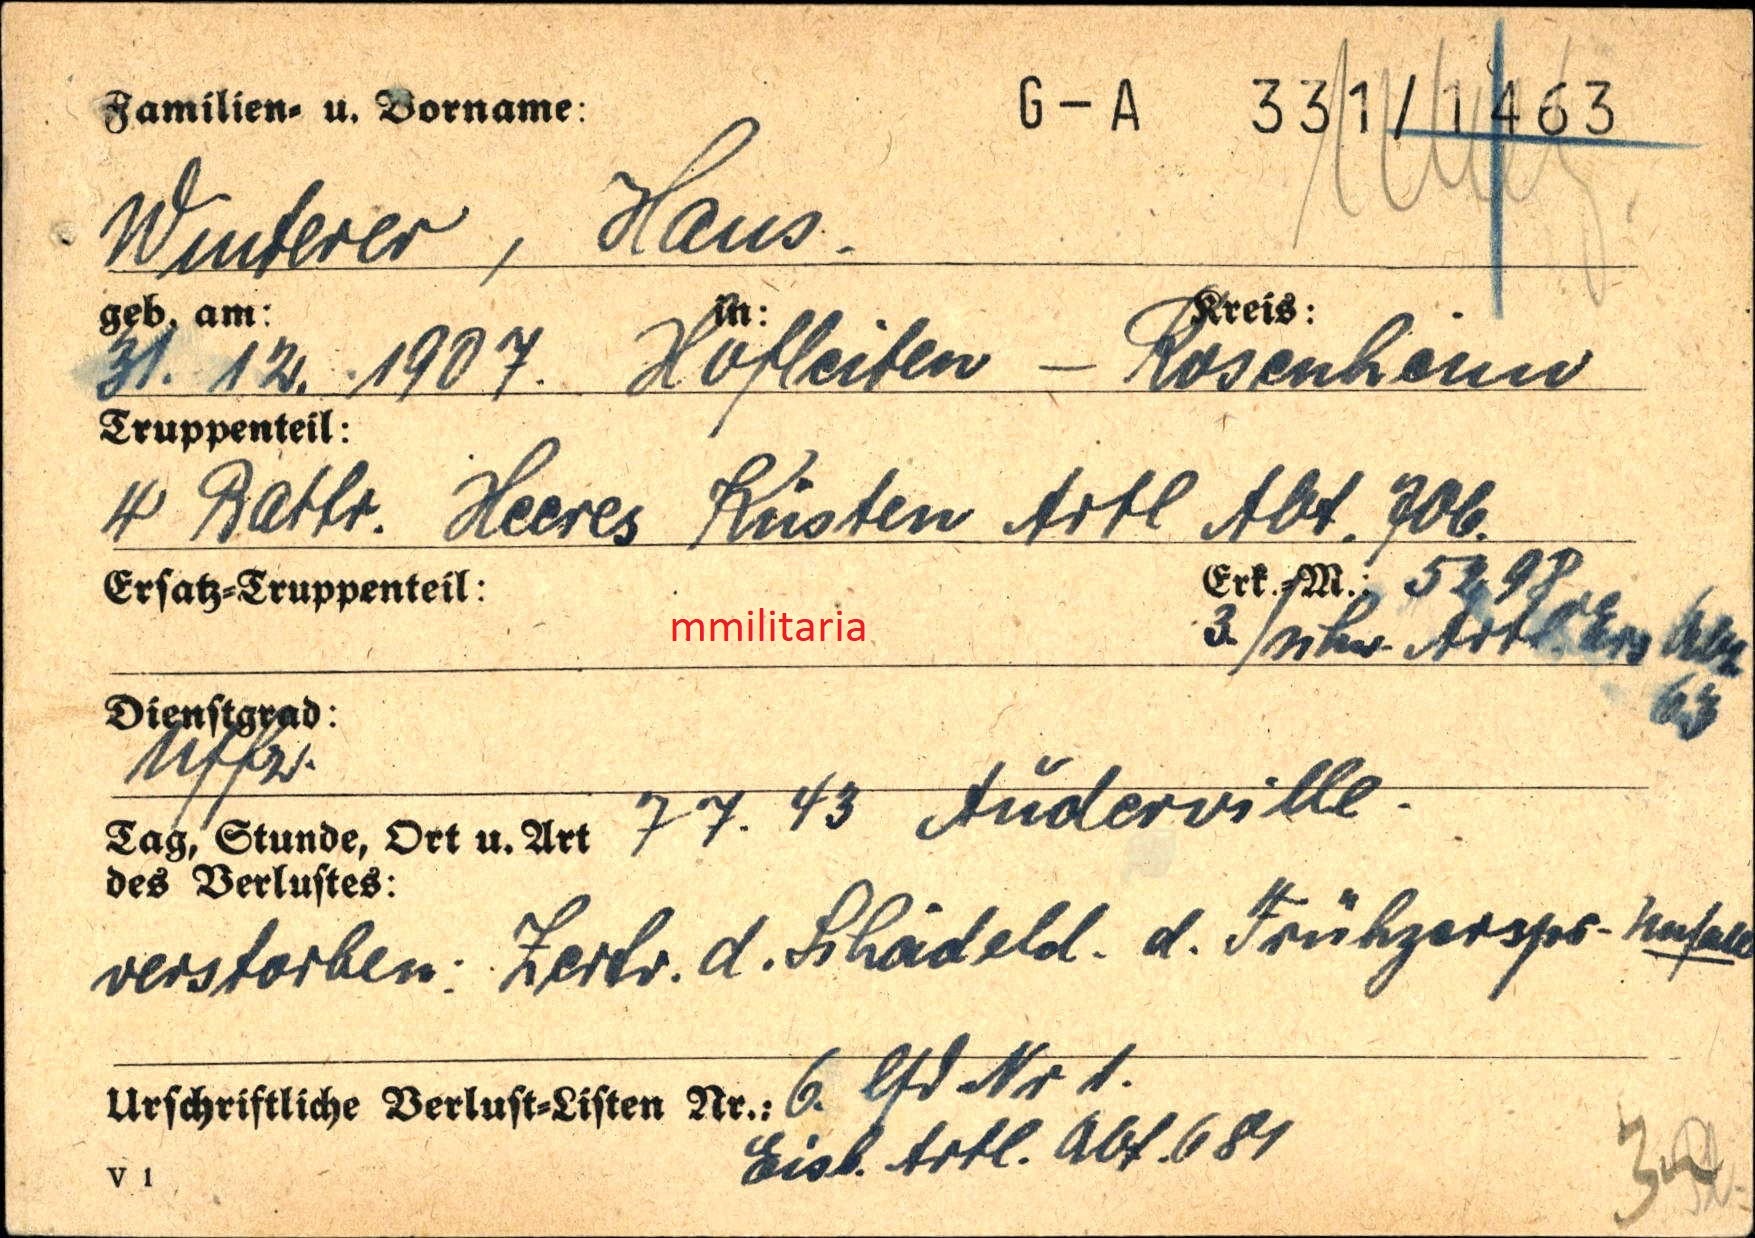 Familien- u. Vorname: G-A 331/1463
Winterer, Hans.
geb. am: in: Kreis:
31. 12. 1907. Hofleiten - Rosenheim
Truppenteil:
4 Battr. Heeres Küsten Artl Abt. 706.
Ersatz-Truppenteil: Erk.-M.: 5298
mmilitaria
3./ Artl. Ers Abt
63
Dienstgrad:
Uffz.
Tag, Stunde, Ort u. Art 7 7. 43 Auderville.
des Verlustes:
verstorben: Zertr. d. Schädeld. d. Frühzersps- Unfall
Urschriftliche Verlust-Listen Nr.: 6. lfd Nr 1.
Eisb. Artl. Abt. 681
V 1